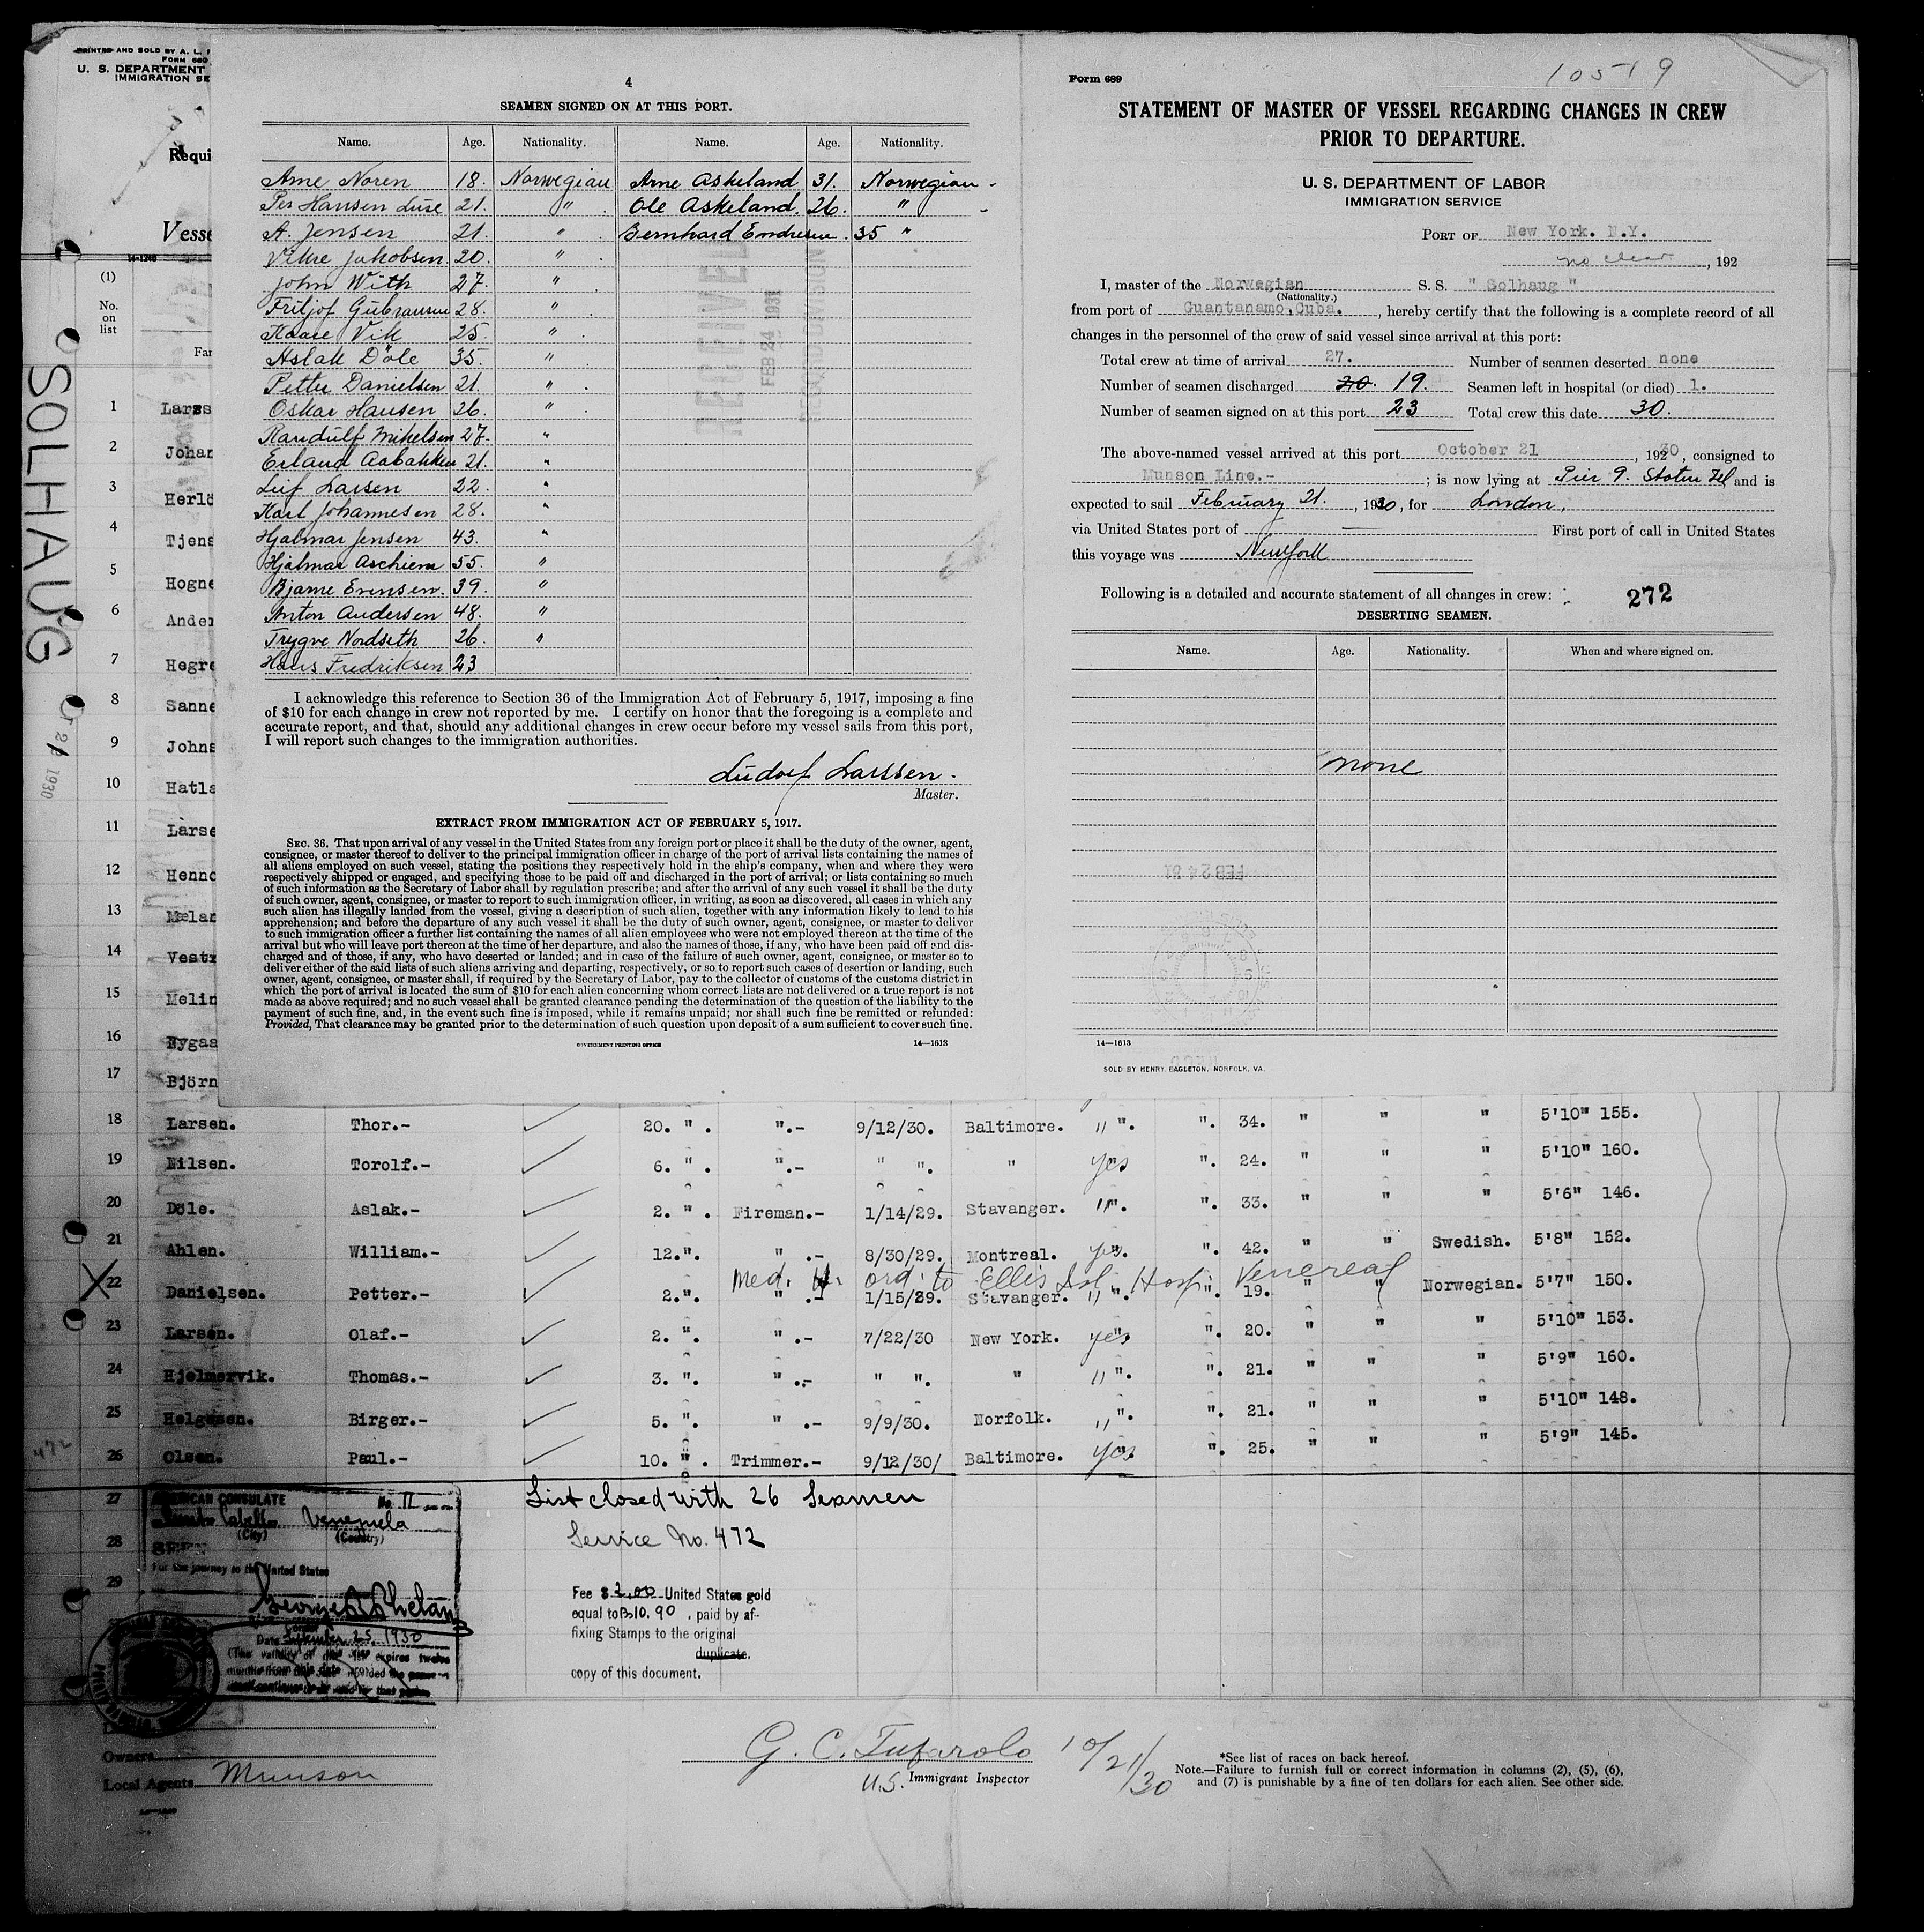 PRINTED AND SOLD BY A. L.
FORM 680
U. S. DEPARTMENT
IMMIGRATION SE
Requi
Vesse
14-1240
(1)
No.
on
list
Far
SOLHAUG
1930
4
SEAMEN SIGNED ON AT THIS PORT.
Name. Age. Nationality. Name. Age. Nationality.
Arne Noren 18. Norwegian Arne Askeland 31. Norwegian -
Per Hansen 21. " Ole Askeland. 26. "
A. Jensen 21. " Bernhard Endresen. 35 "
Jakobsen. 20. "
John With 27. "
Fritjof Gubransen 28. "
Kaare Vik 25. "
Aslak Döle 35. "
Petter Danielsen 21. "
Oskar Hansen 26. "
Randulf Mikelsen 27. "
Erland Aabakken 21. "
Leif Larsen 22. "
Karl Johannesen 28. "
Hjalmar Jensen 43. "
Hjalmar Aschiem 55. "
Bjarne Evensen. 39. "
Anton Andersen 48. "
Trygve Nordseth 26. "
Hans Fredriksen 23
I acknowledge this reference to Section 36 of the Immigration Act of February 5, 1917, imposing a fine
of $10 for each change in crew not reported by me. I certify on honor that the foregoing is a complete and
accurate report, and that, should any additional changes in crew occur before my vessel sails from this port,
I will report such changes to the immigration authorities.
Ludolf Larssen.
Master.
EXTRACT FROM IMMIGRATION ACT OF FEBRUARY 5, 1917.
SEC. 36. That upon arrival of any vessel in the United States from any foreign port or place it shall be the duty of the owner, agent,
consignee, or master thereof to deliver to the principal immigration officer in charge of the port of arrival lists containing the names of
all aliens employed on such vessel, stating the positions they respectively hold in the ship's company, when and where they were
respectively shipped or engaged, and specifying those to be paid off and discharged in the port of arrival; or lists containing so much
of such information as the Secretary of Labor shall by regulation prescribe; and after the arrival of any such vessel it shall be the duty
of such owner, agent, consignee, or master to report to such immigration officer, in writing, as soon as discovered, all cases in which any
such alien has illegally landed from the vessel, giving a description of such alien, together with any information likely to lead to his
apprehension; and before the departure of any such vessel it shall be the duty of such owner, agent, consignee, or master to deliver
to such immigration officer a further list containing the names of all alien employees who were not employed thereon at the time of the
arrival but who will leave port thereon at the time of her departure, and also the names of those, if any, who have been paid off and dis-
charged and of those, if any, who have deserted or landed; and in case of the failure of such owner, agent, consignee, or master so to
deliver either of the said lists of such aliens arriving and departing, respectively, or so to report such cases of desertion or landing, such
owner, agent, consignee, or master shall, if required by the Secretary of Labor, pay to the collector of customs of the customs district in
which the port of arrival is located the sum of $10 for each alien concerning whom correct lists are not delivered or a true report is not
made as above required; and no such vessel shall be granted clearance pending the determination of the question of the liability to the
payment of such fine, and, in the event such fine is imposed, while it remains unpaid; nor shall such fine be remitted or refunded:
Provided, That clearance may be granted prior to the determination of such question upon deposit of a sum sufficient to cover such fine.
GOVERNMENT PRINTING OFFICE 14—1613
RECEIVED
FEB 24 1931
RECORD DIVISION
Form 689
10519
STATEMENT OF MASTER OF VESSEL REGARDING CHANGES IN CREW
PRIOR TO DEPARTURE.
U. S. DEPARTMENT OF LABOR
IMMIGRATION SERVICE
PORT OF New York. N.Y.
no clear, 192
I, master of the Norwegian S. S. " Solhaug "
(Nationality.)
from port of Guantanamo, Cuba. , hereby certify that the following is a complete record of all
changes in the personnel of the crew of said vessel since arrival at this port:
Total crew at time of arrival 27. Number of seamen deserted none
Number of seamen discharged 20. 19. Seamen left in hospital (or died) 1.
Number of seamen signed on at this port 23 Total crew this date 30.
The above-named vessel arrived at this port October 21 , 1930, consigned to
Munson Line.- ; is now lying at Pier 9. Staten Isl and is
expected to sail February 21. , 1930, for London,
via United States port of First port of call in United States
this voyage was New York
Following is a detailed and accurate statement of all changes in crew: 272
DESERTING SEAMEN.
Name. Age. Nationality. When and where signed on.
none
FEB 24 31
14—1613
SOLD BY HENRY EAGLETON, NORFOLK, VA.
1 Larss
2 Johan
3 Herlö
4 Tjens
5 Hogne
6 Ander
7 Hegre
8 Sanne
9 Johns
10 Hatls
11 Larse
12 Henno
13 Mælan
14 Vestr
15 Melin
16 Nygaa
17 Björn
18 Larsen. Thor.- 20. " . ".- 9/12/30. Baltimore. " ". ". 34. " " " 5'10" 155.
19 Nilsen. Torolf.- 6. " . ".- " ". " yes ". 24. " " " 5'10" 160.
20 Döle. Aslak.- 2. " . Fireman.- 1/14/29. Stavanger. " ". ". 33. " " " 5'6" 146.
21 Ahlen. William.- 12.". " .- 8/30/29. Montreal. yes. ". 42. " " Swedish. 5'8" 152.
Med. ord. to Ellis Isl. Hosp. Venereal
22 Danielsen. Petter.- 2.". " .- 1/15/29. Stavanger. " ". ". 19. " " Norwegian. 5'7" 150.
23 Larsen. Olaf.- 2. ". " .- 7/22/30 New York. yes ". 20. " " " 5'10" 153.
24 Hjelmervik. Thomas.- 3. ". " .- " ". " " ". ". 21. " " " 5'9" 160.
25 Helgesen. Birger.- 5. ". " .- 9/9/30. Norfolk. " ". ". 21. " " " 5'10" 148.
472
26 Olsen. Paul.- 10. " . Trimmer.- 9/12/30/ Baltimore. yes ". 25. " " " 5'9" 145.
27 List closed with 26 Seamen
28 Service No. 472
29
AMERICAN CONSULATE No. 11
Cabello, Venezuela
(City) (Country)
SEEN
For the journey to the United States
Date September 25, 1930
(The validity of this visa expires twelve
months from this date provided the
Fee $ 2.00 United States gold
equal to B 10.90 , paid by af-
fixing Stamps to the original
duplicate.
copy of this document.
Owners
Local Agents Munson
G. C. Tufarolo 10/21/30
U.S. Immigrant Inspector
*See list of races on back hereof.
Note.—Failure to furnish full or correct information in columns (2), (5), (6),
and (7) is punishable by a fine of ten dollars for each alien. See other side.